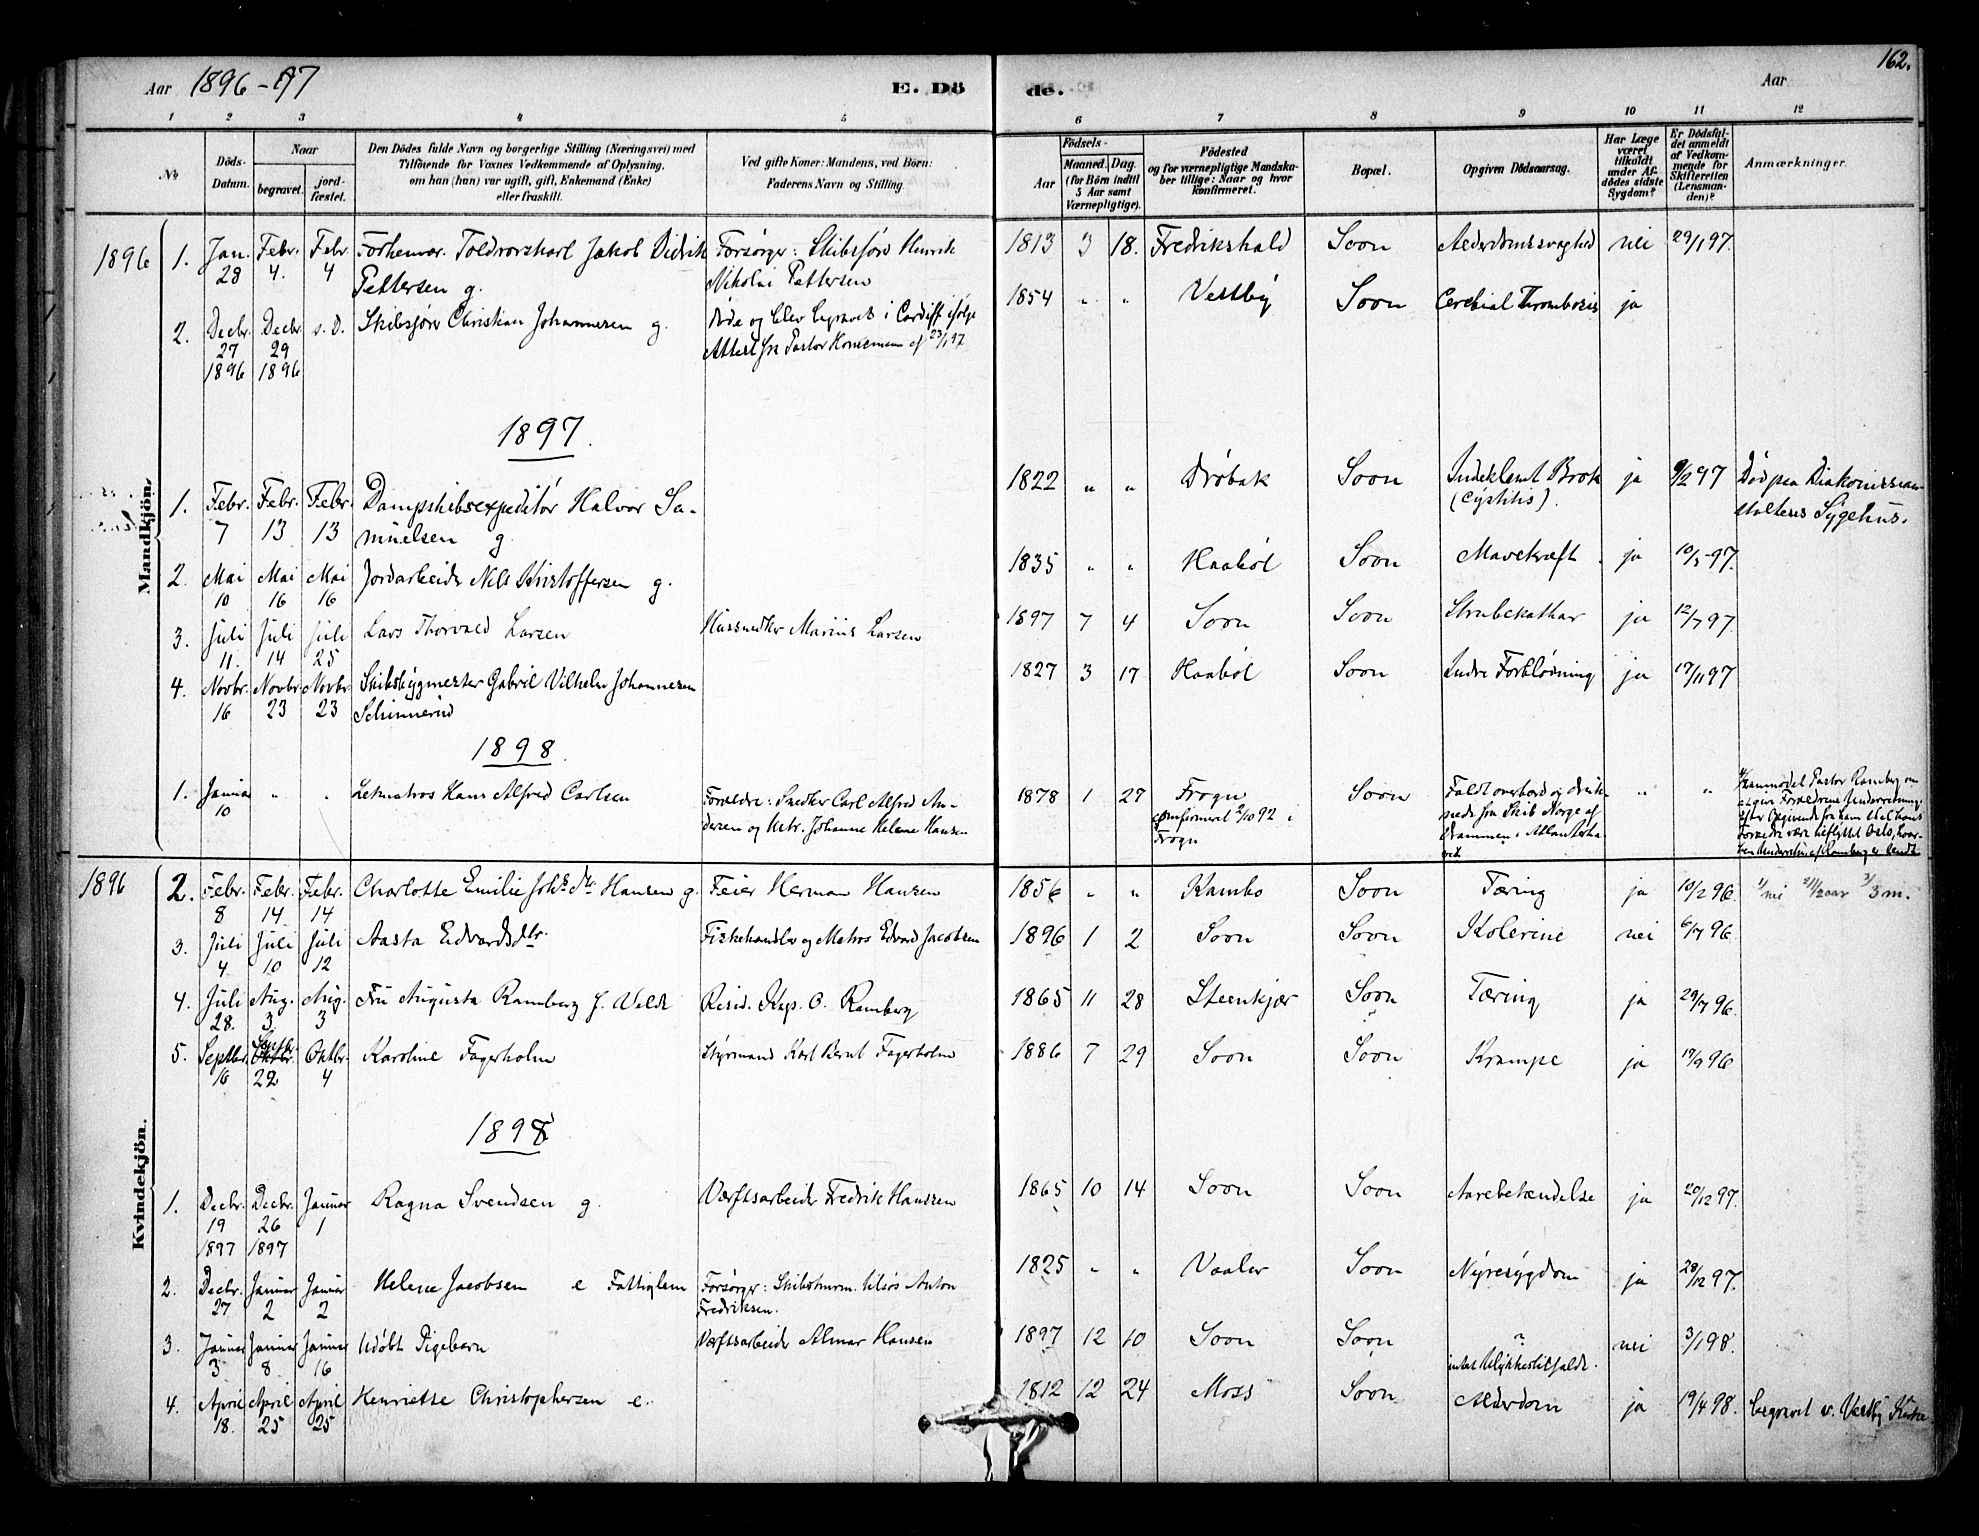 162.
Aar 1896-97 E. Dö de. Aar
1 2 3 4 5 6 7 8 9 10 11 12
No
Döds-Datum.
Naar
begravet. jord-fæstet.
Den Dödes fulde Navn og borgerlige Stilling (Næringsvei) med
Tilföiende for Voxnes Vedkommende af Oplysning,
om han (hun) var ugift, gift, Enkemand (Enke)
eller fraskilt.
Ved gifte Koner: Mandens, ved Börn:
Faderens Navn og Stilling.
Födsels-
Aar Maaned. Dag.
(for Börn indtil
5 Aar samt
Værnepligtige).
Födested
og for værnepligtige Mandska-
ber tillige: Naar og hvor
konfirmeret.
Bopæl.
Opgiven Dödsaarsag.
Har Læge
været
tilkaldt
under Af-
dödes sidste
Sygdom?
Er Dödsfal-
det anmeldt
af Vedkom-
mende for
Skifteretten
(Lensman-
den)?
Anmærkninger.
Mandkjön.
1896 1. Jan. 28 Febr. 4. Febr. 4 Forhenvær. Toldrorskarl Jakob Didrik Pettersen g. Forsørger: Skibsfører Henrik Nikolai Pettersen 1813 3 18. Fredrikshald Soon Alderdomssvaghed nei 29/1 97.
2. Decbr. 27 1896 Decbr. 29 1896 s. D. Skibsfører Christian Johannesen g. Døde og blev begravet i Cardiff ifølge Attest fra Pastor 23/1 97 1854 " " Vestby Soon Cerebral Thrombosis ja
1897.
1. Febr. 7 Febr. 13 Febr. 13 Dampskibsexpeditør Halvor Sa-
muelsen g. 1822 " " Drøbak Soon Indeklemt Brok (Cystitis). ja 9/2 97 Død paa Diakonissean-
staltens Sygehus.
2. Mai 10 Mai 16 Mai 16 Jordarbeider Nils Kristoffersen g. 1835 " " Haabøl Soon Mavekræft ja 10/5 97.
3. Juli 11. Juli 14 Juli 25 Lars Thorvald Larsen Hussnedker Marius Larsen 1897 7 4 Soon Soon Strubekathar ja 12/7 97.
4. Novbr. 16 Novbr. 23 Novbr. 23 Skibsbygmester Gabriel Vilhelm Johannesen 1827 3 17 Haabøl Soon Indre Forblødning ja 17/11 97
1898.
1. Januar 10 " " Letmatros Hans Alfred Carlsen Forældre: Snedker Carl Alfred An-
dersen og Johanne Helene Hansen 1878 1 27 Frogn confirmeret 2/10 92 i Frogn Soon Faldt overbord og druk-
nede fra Skib Norge af Drammen i Atlanterha-
vet " "
Kvindekjön.
1896 2. Febr. 8 Febr. 14 Febr. 14 Charlotte Emilie Johsdtr. Hansen g. Feier Herman Hansen 1856 " " Kambo Soon Tæring ja 10/2 96. 1/ nei 2/ 1/2 aar 3/ 3 m.
3. Juli 4 Juli 10 Juli 12 Aasta Edvardsdtr. Fiskehandler og Matros Edvard Jacobsen 1896 1 2 Soon Soon Kolerine nei 6/7 96.
4. Juli 28. Aug. 3 Aug. 3 Fru Augusta Ramberg f. Veldt Resid. Kap. O. Ramberg 1865 11 28 Steenkjær Soon Tæring ja 29/7 96.
5. Septbr. 16 Septbr. 22 Oktbr. 4 Karoline Fagerholm Styrmand Karl Bernt Fagerholm 1886 7 29 Soon Soon Krampe ja 17/9 96
1898
1. Decbr. 19 1897 Decbr. 26 1897 Januar 1 Ragna Svendsen g. Værftsarbeider Fredrik Hansen 1865 10 14 Soon Soon Aarebetændelse ja 20/12 97.
2. Decbr. 27 Januar 2 Januar 2 Helene Jacobsen e Fattiglem Forsørger: Anton Fredriksen. 1825 " " Vaaler Soon Nyresygdom ja 28/12 97.
3. Januar 3 Januar 8 Januar 16 Udøbt Pigebarn Værftsarbeider Almar Hansen 1897 12 10 Soon Soon ? intet Ulykkestilfælde. nei 3/1 98.
4. April 18. April 25 April 25 Henriette Christophersen e. 1812 12 24 Moss Soon Alderdom ja 19/4 98. begravet v. Vestby Kirke